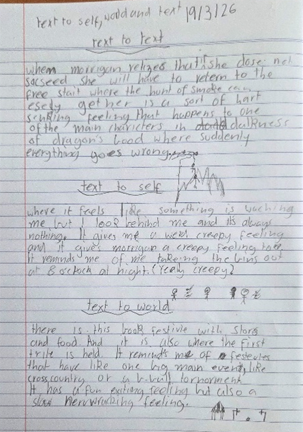 text to self, world and text 19/3/26
text to text
when morrigan relizes that if she dose not
sucseed she will have to retern to the
free stait where the hunt of smoke can
esely get her is a sort of hart
sinking feeling that happens to one
of the main characters in darkness
of dragon's where suddenly
everything goes wrong
text to self
where it feels like something is waching
me but I look behind me and its always
nothing. It gives me a weird creepy feeling
and it gives morrigan a creepy feeling too.
it reminds me of me takeing the bins out
at 8 oclock at night. (realy creepy)
text to world
there is this book festivle with stors
and food And it is also where the first
trile is held. It reminds me of festeveles
that have like one big main event like
crosscountry or a tornoment.
It has a fun exiting feeling but also a
slow nerv wracking feeling.